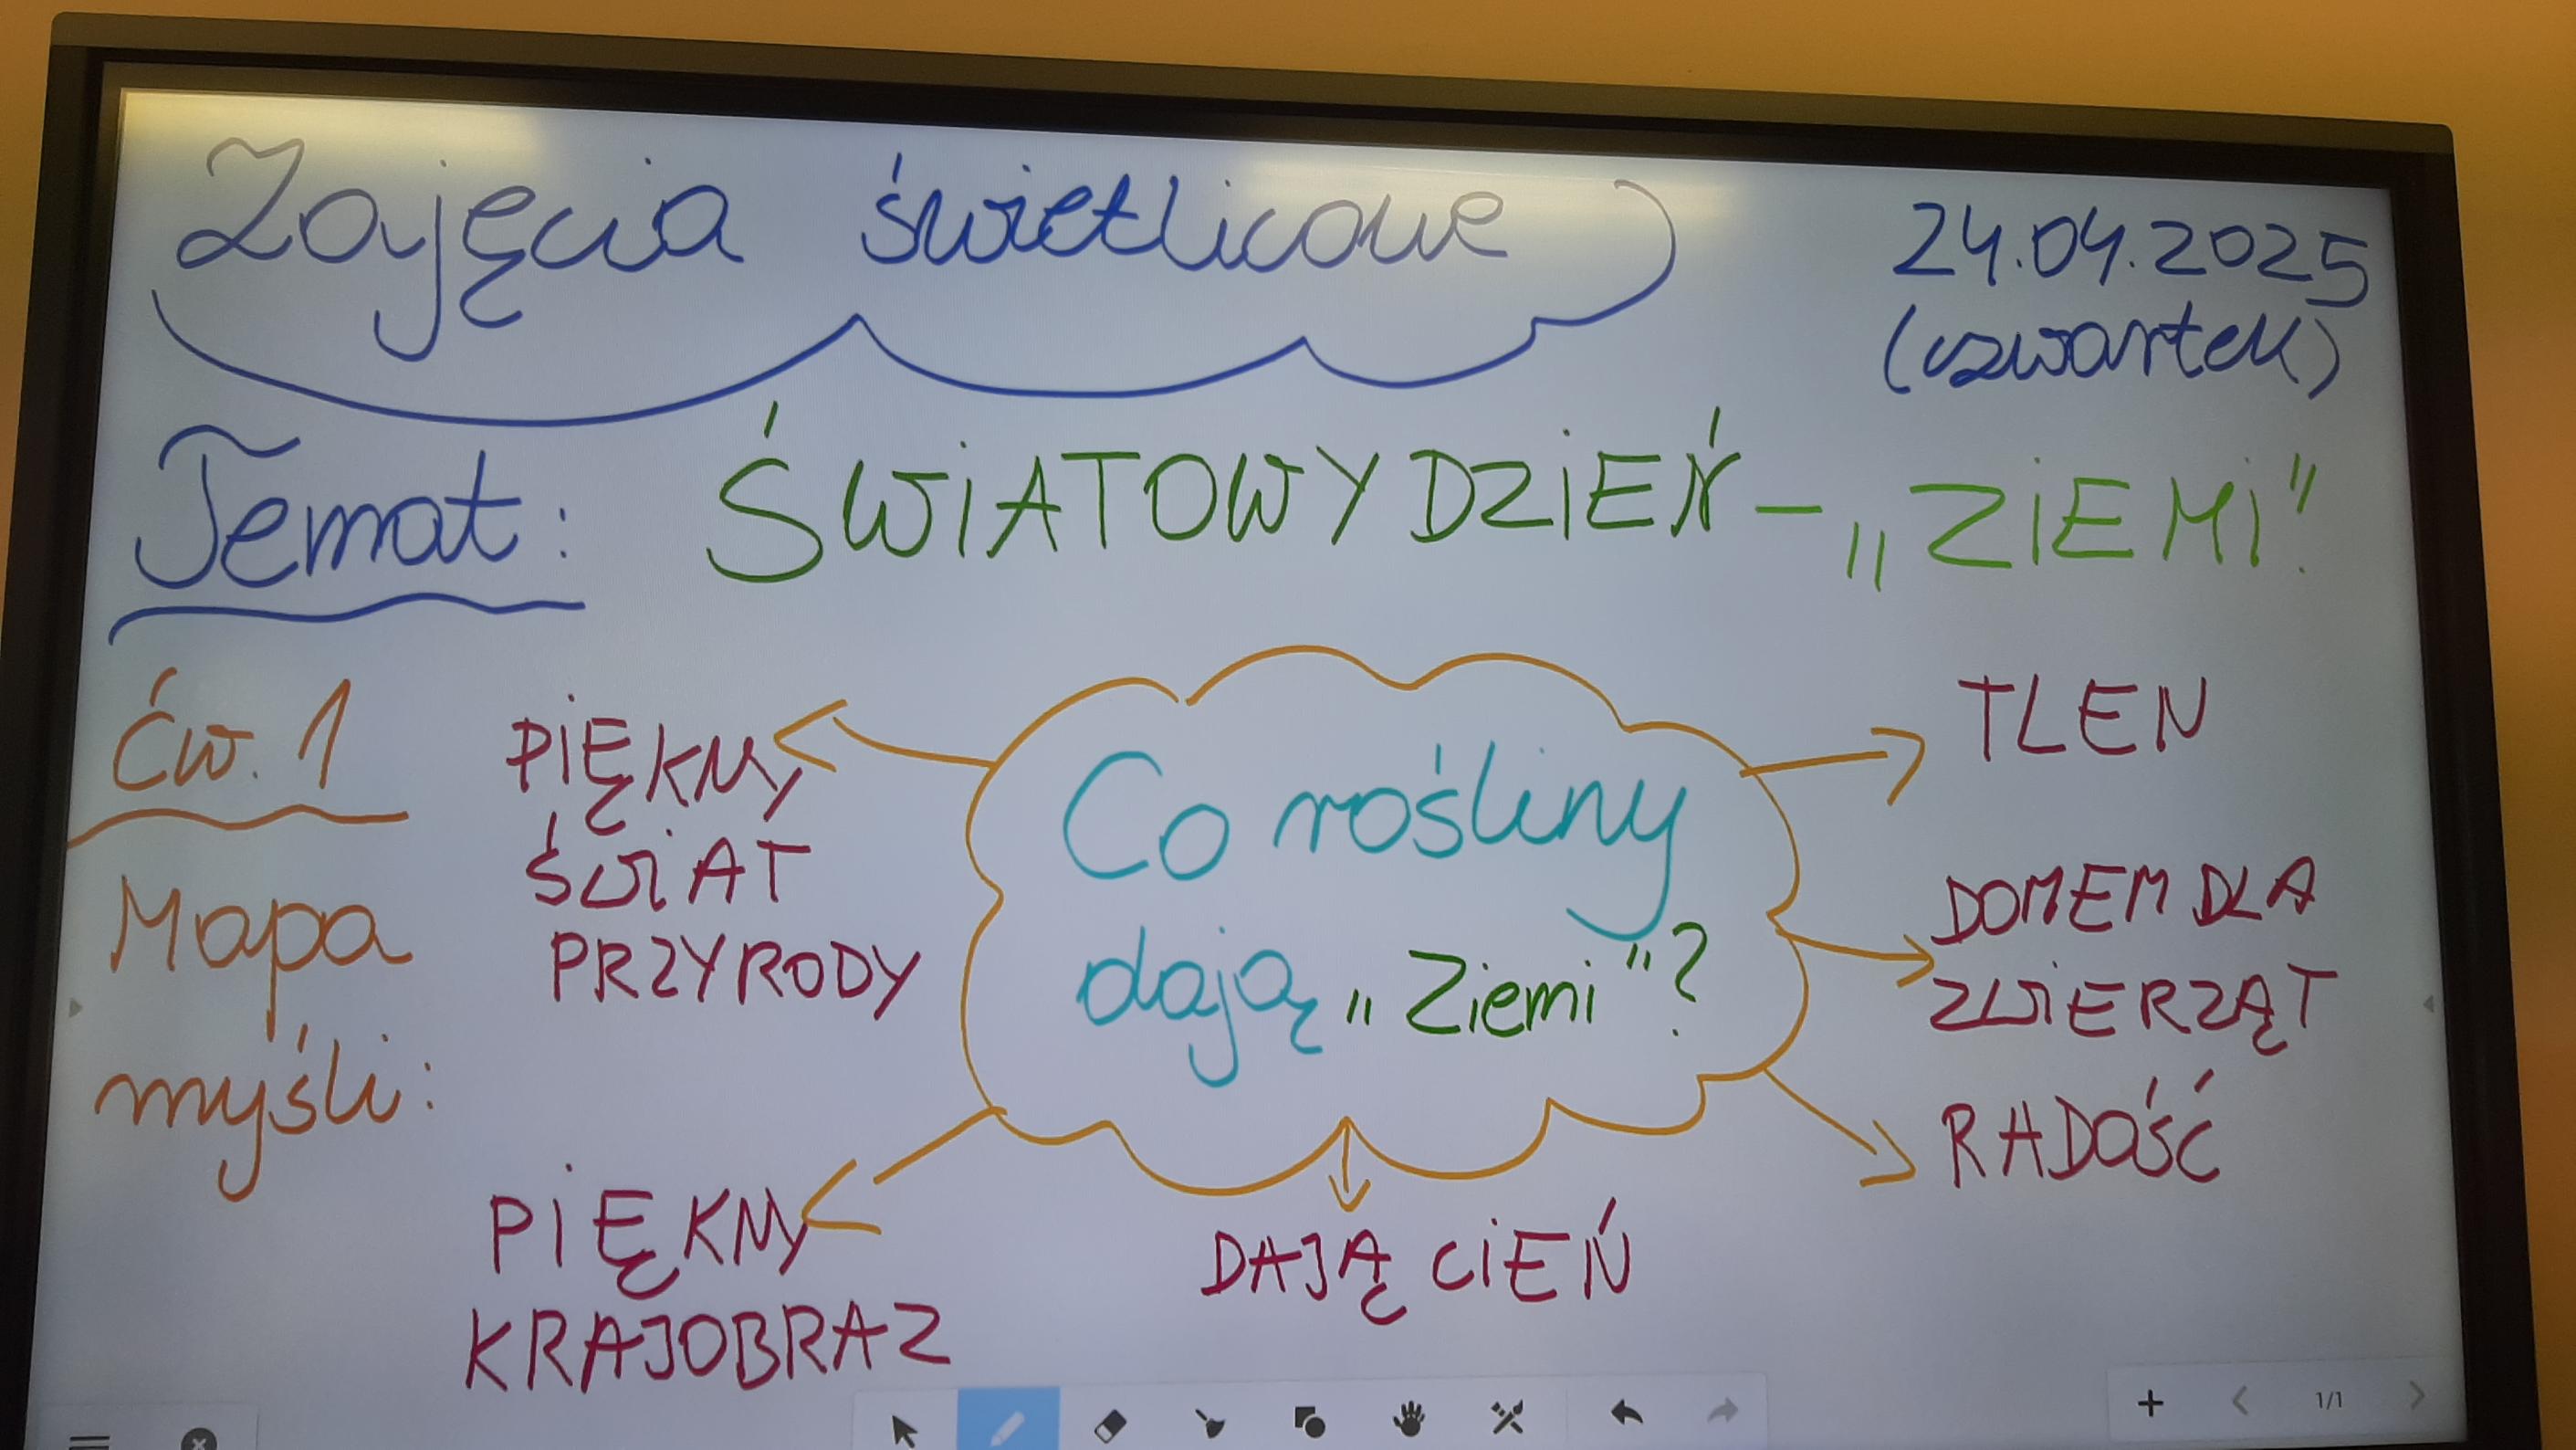 Zajęcia świetlicowe
24.04.2025
(czwartek)
Temat: ŚWiATOWY DZiEŃ – „ZiEMi".
Ćw. 1
Mapa
myśli:
Co rośliny
dają „Ziemi"?
PiĘKNY
ŚWiAT
PRZYRODY
TLEN
DOMEM DLA
ZWiERZĄT
RADOŚĆ
DAJĄ CiEŃ
PiĘKNY
KRAJOBRAZ
1/1